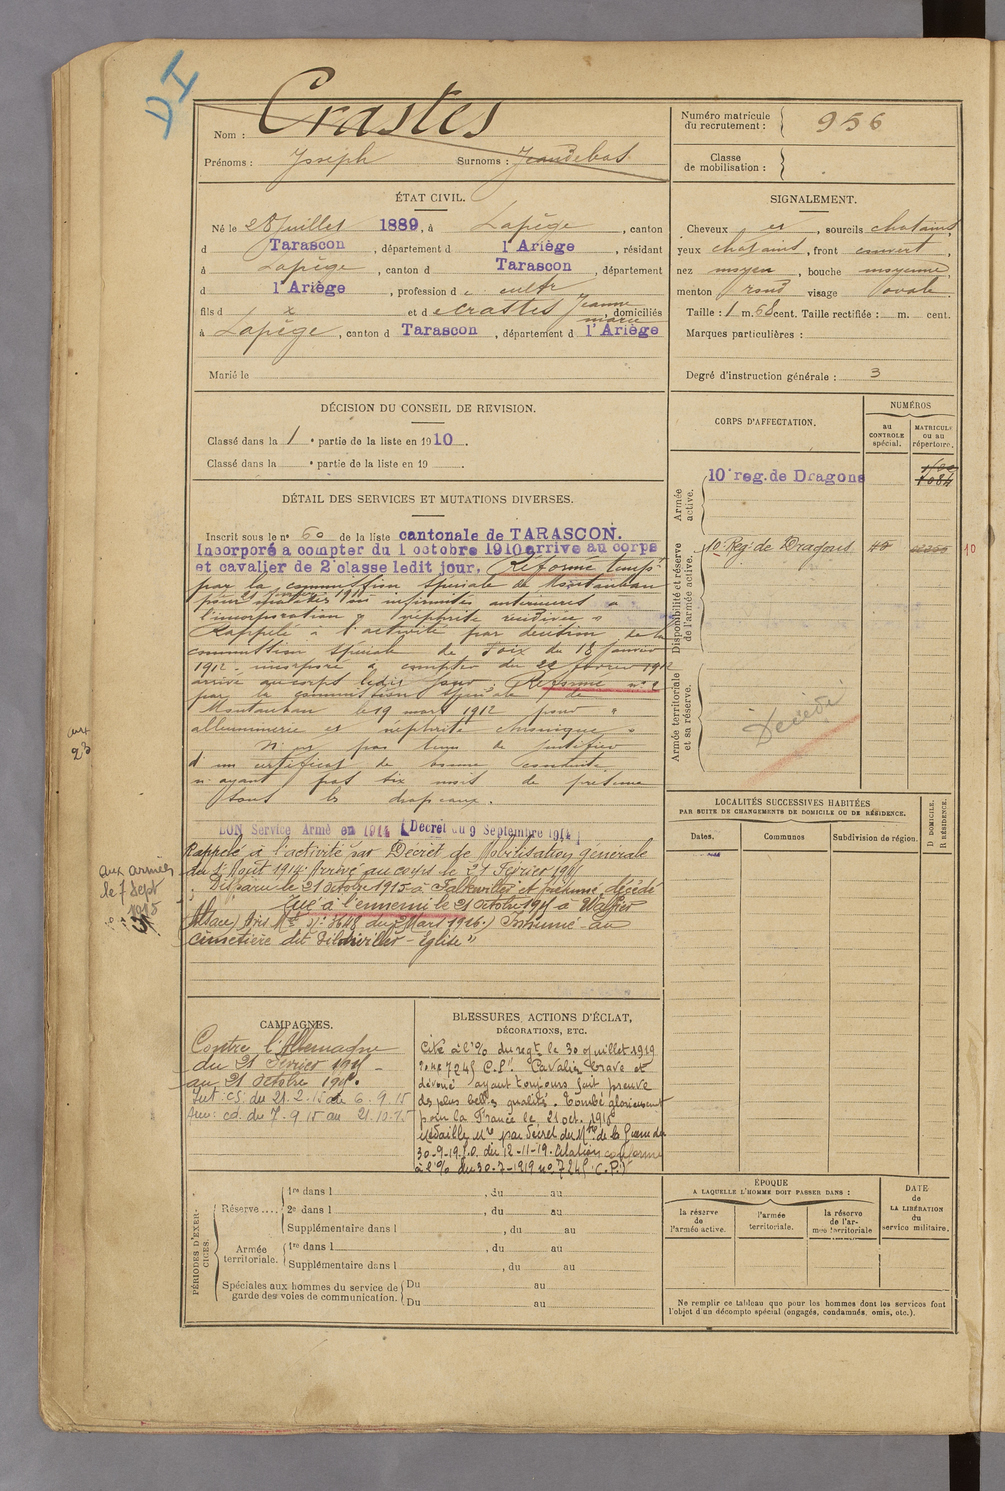 DI
Nom : Crastes
Prénoms : Joseph Surnoms : Jeandebas
Numéro matricule du recrutement : 956
Classe de mobilisation :
ÉTAT CIVIL.
Né le 28 Juillet 1889, à Lapège, canton
d Tarascon, département d l'Ariège, résidant
à Lapège, canton d Tarascon, département
d l'Ariège, profession d e cultr
fils d x et d e Crastes Jeanne marie, domiciliés
à Lapège, canton d Tarascon, département d l'Ariège
Marié le
SIGNALEMENT.
Cheveux et, sourcils chatains
yeux chatains, front couvert,
nez moyen, bouche moyenne,
menton rond visage ovale.
Taille : 1 m. 68 cent. Taille rectifiée : m. cent.
Marques particulières :
Degré d'instruction générale : 3
DÉCISION DU CONSEIL DE REVISION.
Classé dans la 1e partie de la liste en 1910.
Classé dans la e partie de la liste en 19 .
CORPS D'AFFECTATION.
NUMÉROS
au CONTROLE spécial.
MATRICULE ou au répertoire.
Armée active.
10e reg. de Dragons
1084
Disponibilité et réserve de l'armée active.
10e Reg. de Dragons
10
Armée territoriale et sa réserve.
Décédé
DÉTAIL DES SERVICES ET MUTATIONS DIVERSES.
Inscrit sous le n° 60 de la liste cantonale de TARASCON.
Incorporé a compter du 1 octobre 1910 arrive au corps
et cavalier de 2e classe ledit jour. Réformé temp
par la commission spéciale de Montauban
pour infirmités antérieures à
l'incorporation « néphrite récidive »
Rappelé à l'activité par décision de la
commission spéciale de Foix du 18 Janvier
1912 - incorporé à compter du 22 février 1912
arrivé au corps ledit jour. Réformé n° 2
par la commission spéciale de
Montauban le 19 mars 1912 pour «
albuminurie et néphrite chronique »
N'est pas tenu de justifier
d'un certificat de bonne conduite
n'ayant pas six mois de présence
sous les drapeaux.
BON Service Armé en 1914 (Décret du 9 Septembre 1914)
Rappelé à l'activité par Décret de Mobilisation générale
du 1er Août 1914. Arrivé au corps le 21 Février 1915
Disparu le 21 octobre 1915 à et présumé décédé
Tué à l'ennemi le 21 octobre 1915 à
Alsace) Avis Mel n° 3648 du Mars 1916. Inhumé au
cimetière de Église"
aux 23
aux armées
le 7 Sept
1915
LOCALITÉS SUCCESSIVES HABITÉES
PAR SUITE DE CHANGEMENTS DE DOMICILE OU DE RÉSIDENCE.
Dates.
Communes
Subdivision de région.
D DOMICILE. R RÉSIDENCE.
CAMPAGNES.
Contre l'Allemagne
du 21 Février 1915
au 21 Octobre 1915.
Int: CS. du 21. 2. 15 au 6. 9. 15
Arm: cd. du 7. 9. 15 au 21. 10. 15
BLESSURES, ACTIONS D'ÉCLAT,
DÉCORATIONS, ETC.
Cité à l'o/o du regt le 30 Juillet 1919
n° 7245 C.P". Cavalier brave et
dévoué ayant toujours fait preuve
des plus belles qualités. Tombé glorieusement
pour la France le 21 oct. 1915
Médaille Mre par décret du Mtre de la Guerre du
30-9-19. J.O. du 12-11-19. Citation conforme
à l'o/o du 30-7-1919 n° 7245 (C.P.)
PÉRIODES D'EXERCICES.
Réserve....
1re dans l , du au
2e dans l , du au
Supplémentaire dans l , du au
Armée territoriale.
1re dans l , du au
Supplémentaire dans l , du au
Spéciales aux hommes du service de garde des voies de communication.
Du au
Du au
ÉPOQUE
A LAQUELLE L'HOMME DOIT PASSER DANS :
la réserve de l'armée active.
l'armée territoriale.
la réserve de l'armée territoriale
DATE de LA LIBÉRATION du service militaire.
Ne remplir ce tableau que pour les hommes dont les services font
l'objet d'un décompte spécial (engagés, condamnés, omis, etc.).